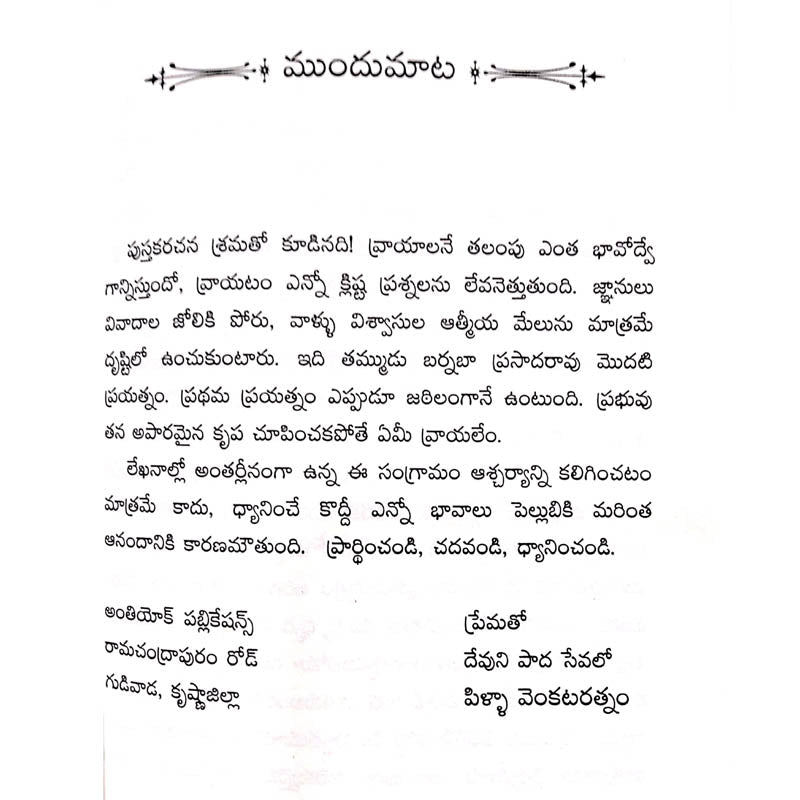 ముందుమాట
పుస్తకరచన శ్రమతో కూడినది! వ్రాయాలనే తలంపు ఎంత భావోద్వే
గాన్నిస్తుందో, వ్రాయటం ఎన్నో క్లిష్ట ప్రశ్నలను లేవనెత్తుతుంది. జ్ఞానులు
వివాదాల జోలికి పోరు, వాళ్ళు విశ్వాసుల ఆత్మీయ మేలును మాత్రమే
దృష్టిలో ఉంచుకుంటారు. ఇది తమ్ముడు బర్నబా ప్రసాదరావు మొదటి
ప్రయత్నం. ప్రథమ ప్రయత్నం ఎప్పుడూ జఠిలంగానే ఉంటుంది. ప్రభువు
తన అపారమైన కృప చూపించకపోతే ఏమీ వ్రాయలేం.
లేఖనాల్లో అంతర్లీనంగా ఉన్న ఈ సంగ్రామం ఆశ్చర్యాన్ని కలిగించటం
మాత్రమే కాదు, ధ్యానించే కొద్దీ ఎన్నో భావాలు పెల్లుబికి మరింత
ఆనందానికి కారణమౌతుంది. ప్రార్థించండి, చదవండి, ధ్యానించండి.
అంతియోక్ పబ్లికేషన్స్
రామచంద్రాపురం రోడ్
గుడివాడ, కృష్ణాజిల్లా
ప్రేమతో
దేవుని పాద సేవలో
పిళ్ళా వెంకటరత్నం